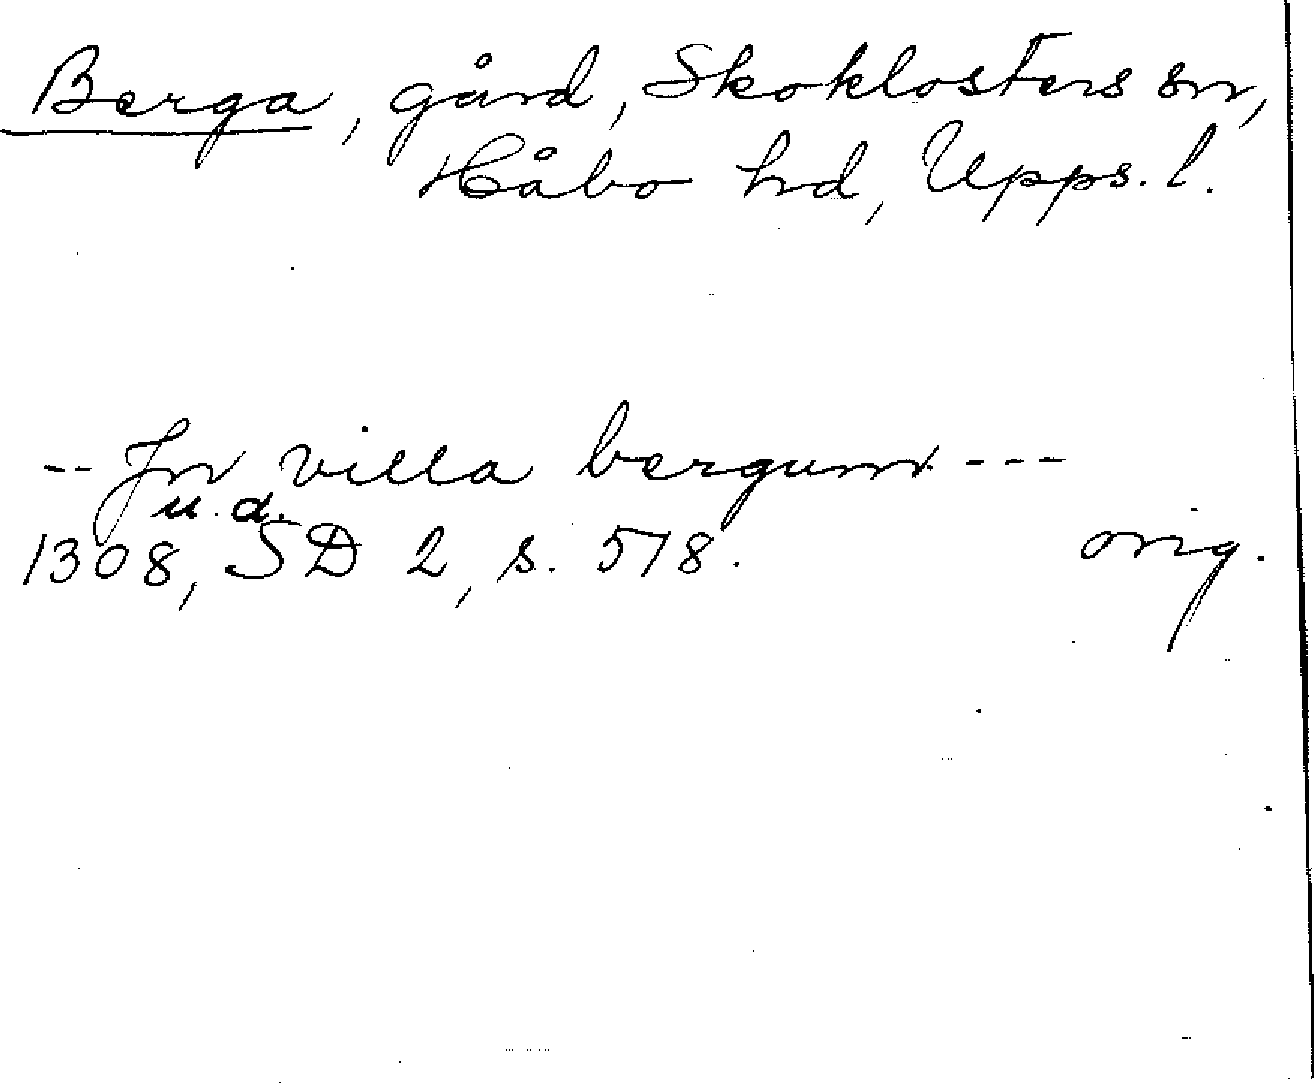 Berga, gård, Skoklosters sn,
Håbo hd, Upps. l.
-- Jn villa bergum ---
u. d.
1308, SD 2, s. 578. orig.